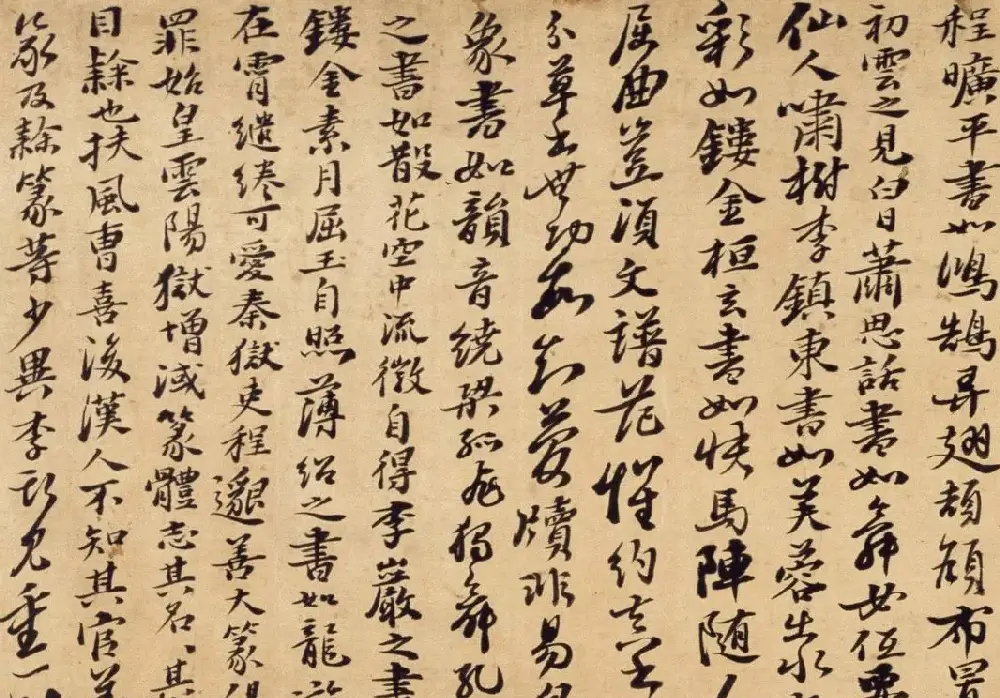 程曠平書如鴻鵠弄翅頡頏布置
初雲之見白日蕭思話書如舞女低
仙人嘯樹李鎮東書如芙蓉出水
彩如鏤金桓玄書如快馬陣隨人
屈曲豈須文譜范惟約真書
分草書無功故知蕳牘非易皇
象書如韻音繞梁孤飛獨舞孔
之書如散花空中流徽自得李巖之書
鏤金素月屈玉自照薄紹之書如龍游
在霄繾綣可愛秦獄吏程邈善大篆得
罪始皇雲陽獄增減篆體志其名其
目隸也扶風曹喜後漢人不知其官善
篆及隸篆等少異李斯見重一